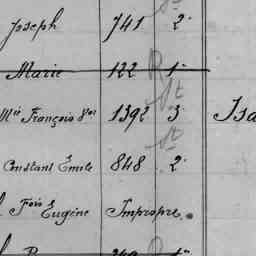 Joseph 741 2
Marie 122 R 1
St
Mie François Vor 1392 3 Isa
St
Constant Emile 848 2
Fois Eugène Impropre.